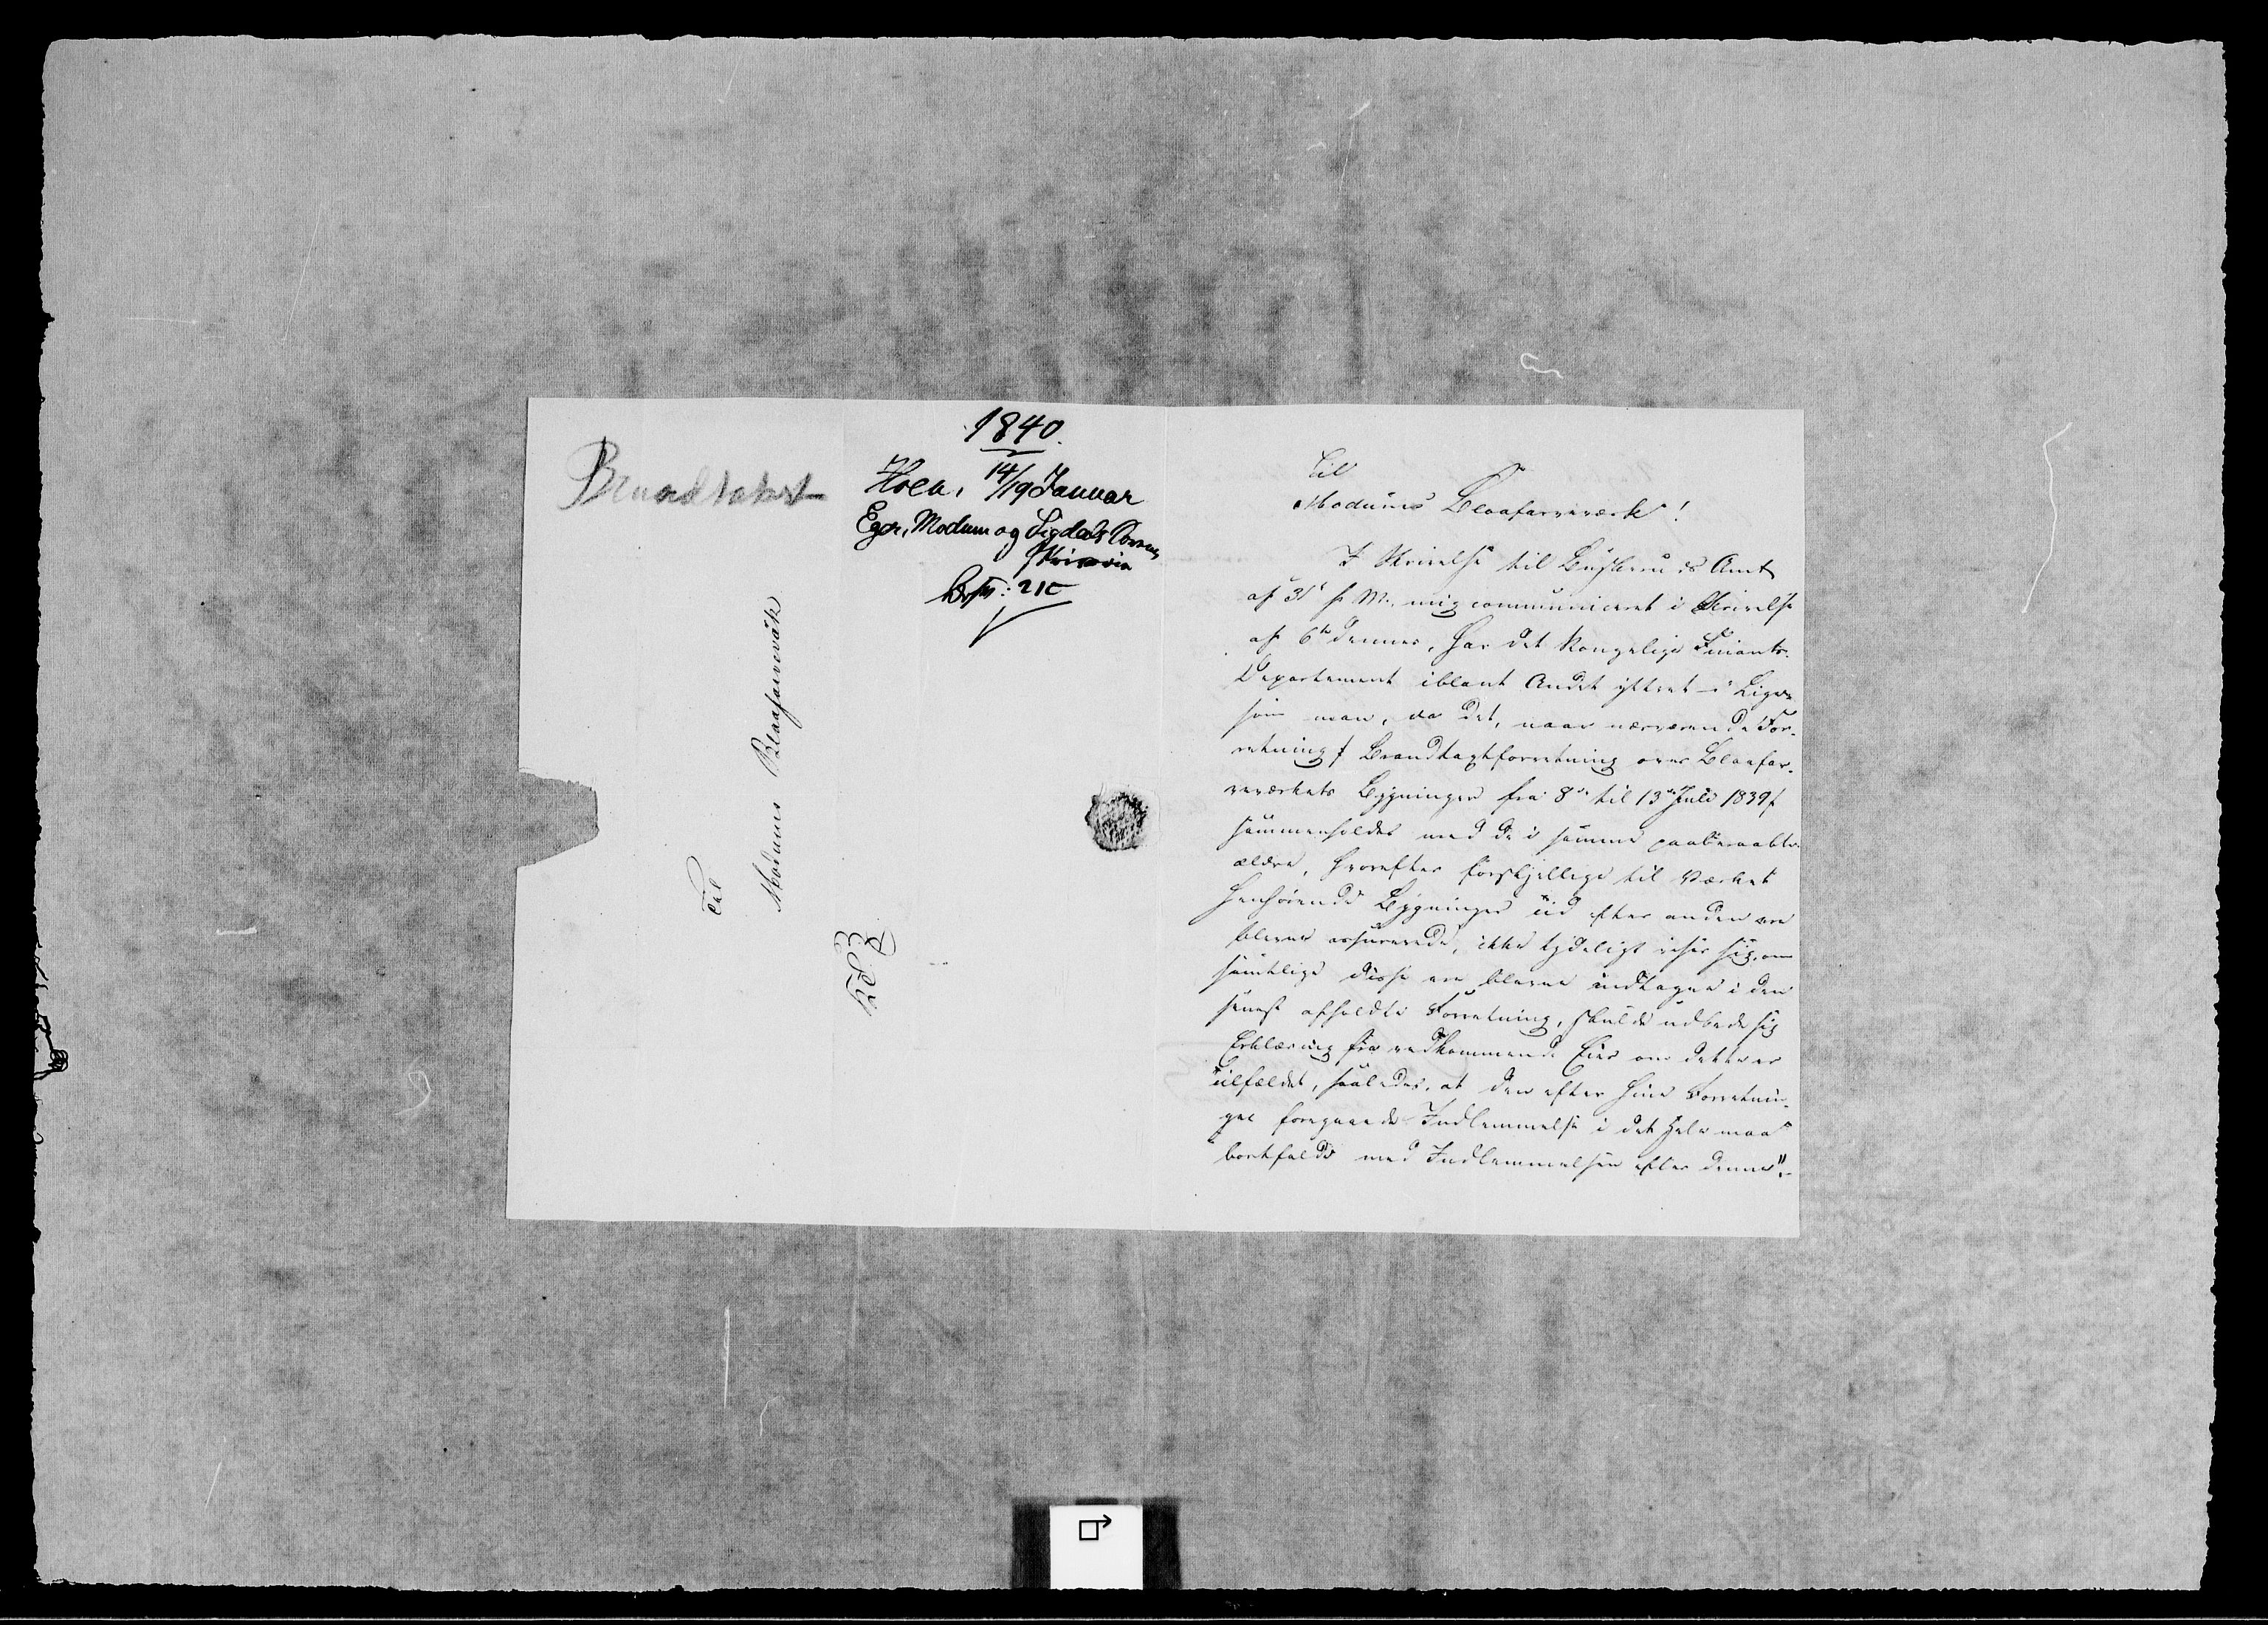 Brandtakst
1840.
Hoen, 14/19 Januar
Eger, Modum og Sigdals Soren
skriveri
Til
Modums Blaafarveværk
K: T: S:
Til
Modums Blaafarveværk!
I Skrivelse til Buskeruds Amt
af 31te f. M., mig communiceret i Skrivelse
af 6te dennes, har det Kongelige Finants-
Departement iblant Andet yttret "Lige-
som man, da det, naar nærværende For-
retning / Brandtaxtforretning over Blaafar-
veværkets Bygninger fra 8de til 13de Juli 1839/
sammenholdes med de i samme paaberaabte
ældre, hvorefter forskjellige til Værket
henhørende Bygninger Tid efter anden ere
blevne assurerede, ikke tydeligt viser sig, om
samtlige disse ere blevne indtagne i den
senest afholdte Forretning, skulde udbede sig
Erklæring fra vedkommende Eier om dette er
Tilfældet, saaledes, at den efter hine Forretnin-
ger foregaaede Indlemmelse i det Hele maa
bortfalde med Indlemmelsen efter denne".-